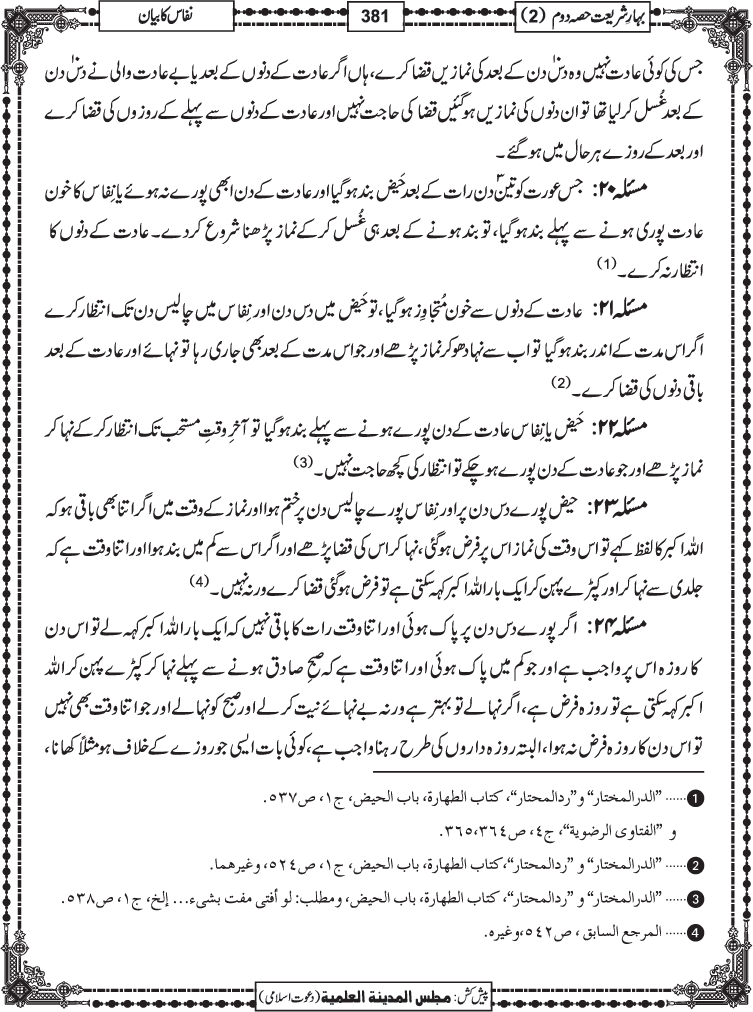 بہارِ شریعت حصہ دوم (2)
381
نفاس کا بیان
جس کی کوئی عادت نہیں وہ دسؔ دن کے بعد کی نمازیں قضا کرے، ہاں اگر عادت کے دنوں کے بعد یا بے عادت والی نے دسؔ دن
کے بعد غُسل کر لیا تھا تو ان دنوں کی نمازیں ہو گئیں قضا کی حاجت نہیں اور عادت کے دنوں سے پہلے کے روزوں کی قضا کرے
اور بعد کے روزے ہر حال میں ہو گئے ۔
مسئلہ ۲۰: جس عورت کو تینؔ دن رات کے بعد حَیض بند ہو گیا اور عادت کے دن ابھی پورے نہ ہوئے یا نِفاس کا خون
عادت پوری ہونے سے پہلے بند ہو گیا، تو بند ہونے کے بعد ہی غُسل کر کے نماز پڑھنا شروع کر دے۔ عادت کے دنوں کا
انتظار نہ کرے۔ (1)
مسئلہ ۲۱: عادت کے دنوں سے خون مُتجاوِز ہو گیا، تو حَیض میں دس دن اور نِفاس میں چالیس دن تک انتظار کرے
اگر اس مدت کے اندر بند ہو گیا تو اب سے نہا دھو کر نماز پڑھے اور جو اس مدت کے بعد بھی جاری رہا تو نہائے اور عادت کے بعد
باقی دنوں کی قضا کرے۔ (2)
مسئلہ ۲۲: حَیض یا نِفاس عادت کے دن پورے ہونے سے پہلے بند ہو گیا تو آخرِ وقتِ مستحب تک انتظار کر کے نہا کر
نماز پڑھے اور جو عادت کے دن پورے ہو چکے تو انتظار کی کچھ حاجت نہیں۔ (3)
مسئلہ ۲۳: حیض پورے دس دن پر اور نِفاس پورے چالیس دن پر ختم ہوا اور نماز کے وقت میں اگر اتنا بھی باقی ہو کہ
اللہ اکبر کا لفظ کہے تو اس وقت کی نماز اس پر فرض ہو گئی، نہا کر اس کی قضا پڑھے اور اگر اس سے کم میں بند ہوا اور اتنا وقت ہے کہ
جلدی سے نہا کر اور کپڑے پہن کر ایک بار اللہ اکبر کہہ سکتی ہے تو فرض ہو گئی قضا کرے ورنہ نہیں۔ (4)
مسئلہ ۲۴: اگر پورے دس دن پر پاک ہوئی اور اتنا وقت رات کا باقی نہیں کہ ایک بار اللہ اکبر کہہ لے تو اس دن
کا روزہ اس پر واجب ہے اور جو کم میں پاک ہوئی اور اتنا وقت ہے کہ صبحِ صادق ہونے سے پہلے نہا کر کپڑے پہن کر اللہ
اکبر کہہ سکتی ہے تو روزہ فرض ہے، اگر نہا لے تو بہتر ہے ورنہ بے نہائے نیت کر لے اور صبح کو نہا لے اور جو اتنا وقت بھی نہیں
تو اس دن کا روزہ فرض نہ ہوا، البتہ روزہ داروں کی طرح رہنا واجب ہے، کوئی بات ایسی جو روزے کے خلاف ہو مثلاً کھانا،
1 ...... ”الدرالمختار“ و”ردالمحتار“، کتاب الطھارۃ، باب الحیض، ج۱، ص۵۳۷.
و ”الفتاوی الرضویۃ“، ج٤، ص۳٦٤،۳٦٥.
2 ...... ”الدرالمختار“ و ”ردالمحتار“،کتاب الطھارۃ، باب الحیض، ج۱، ص۵۲٤، وغیرھما.
3 ...... ”الدرالمختار“ و ”ردالمحتار“، کتاب الطھارۃ، باب الحیض، ومطلب: لو أفتی مفت بشیء... إلخ، ج۱، ص۵۳۸.
4 ...... المرجع السابق ، ص۵٤۲،وغیرہ.
پیش کش: مجلس المدینۃ العلمیۃ (دعوت اسلامی)